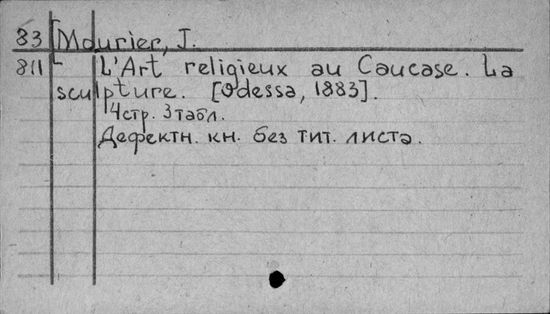 83 Mourier, J.
811 L'Art religieux au Caucase. La
sculpture. [Odessa, 1883].
14стр. 3табл.
Дефектн. кн. без тит. листа.